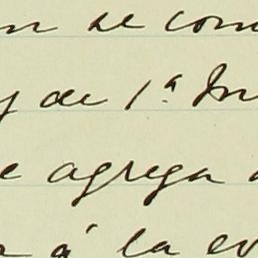 n se con
y de 1ª In
e agrega a
a á la ev